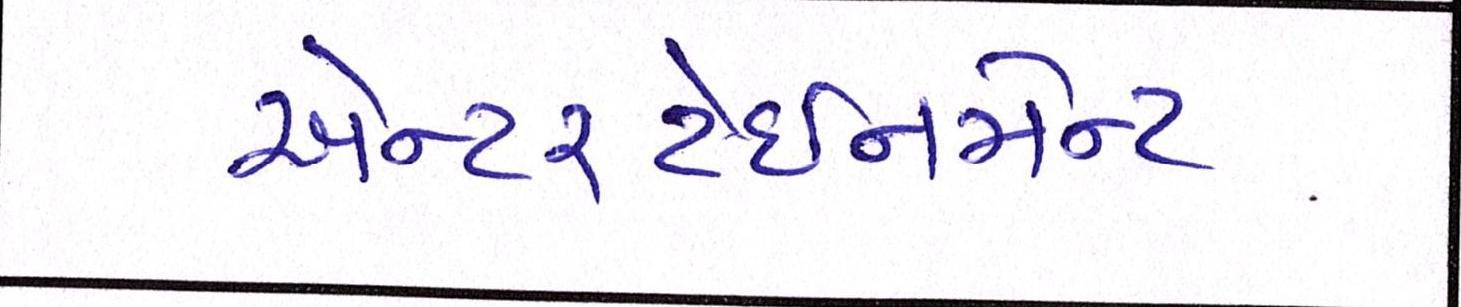 એન્ટરટેઈનમેન્ટ